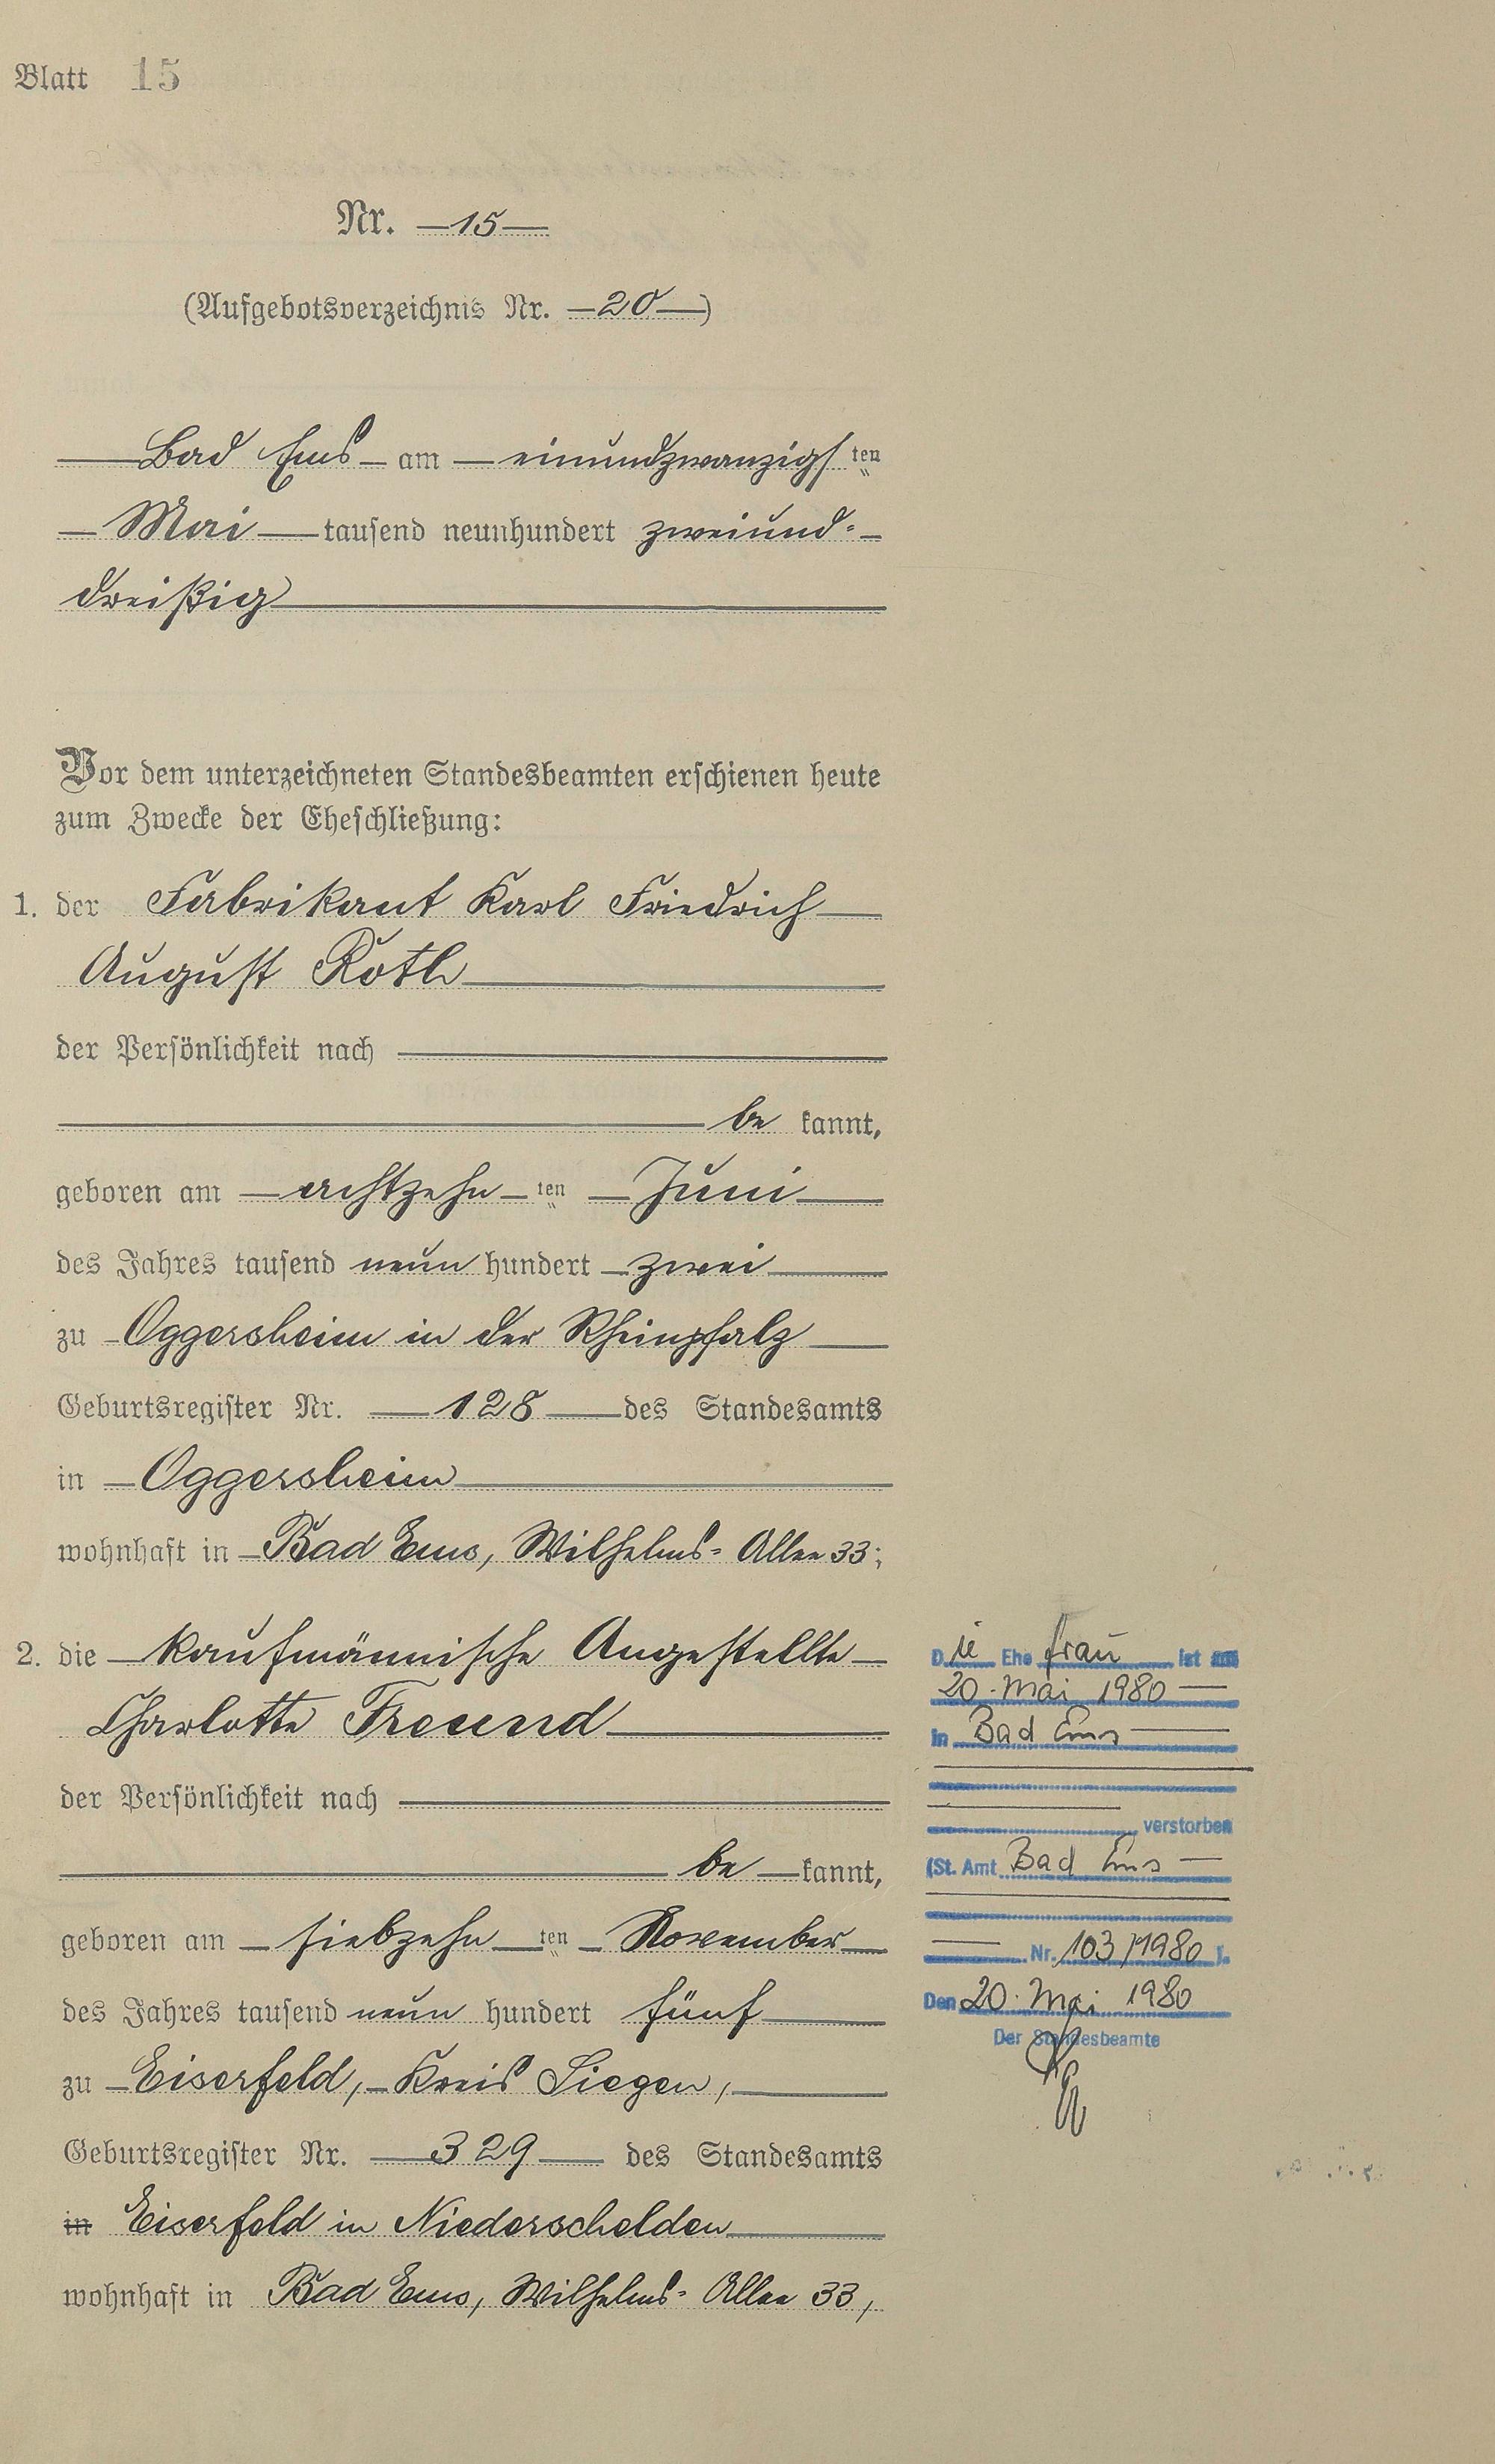 Blatt 15
Nr. 15
(Aufgebotsverzeichnis Nr. 20)
Bad Ems am einundzwanzigsten
Mai tausend neunhundert zweiund-
dreißig
Vor dem unterzeichneten Standesbeamten erschienen heute
zum Zwecke der Eheschließung:
1. der Fabrikant Karl Friedrich
August Roth
der Persönlichkeit nach
be kannt,
geboren am achtzehn ten Juni
des Jahres tausend neun hundert zwei
zu Oggersheim in der Rheinpfalz
Geburtsregister Nr. 128 des Standesamts
in Oggersheim
wohnhaft in Bad Ems, Wilhelms-Allee 33;
2. die kaufmännische Angestellte
Charlotte Freund
der Persönlichkeit nach
be kannt,
geboren am siebzehn ten November
des Jahres tausend neun hundert fünf
zu Eiserfeld, Kreis Siegen,
Geburtsregister Nr. 329 des Standesamts
in Eiserfeld in Niederschelden
wohnhaft in Bad Ems, Wilhelms-Allee 33,
Die Ehefrau ist am
20. Mai 1980
in Bad Ems
verstorben
(St. Amt Bad Ems
Nr. 103/1980).
Den 20. Mai 1980
Der Standesbeamte